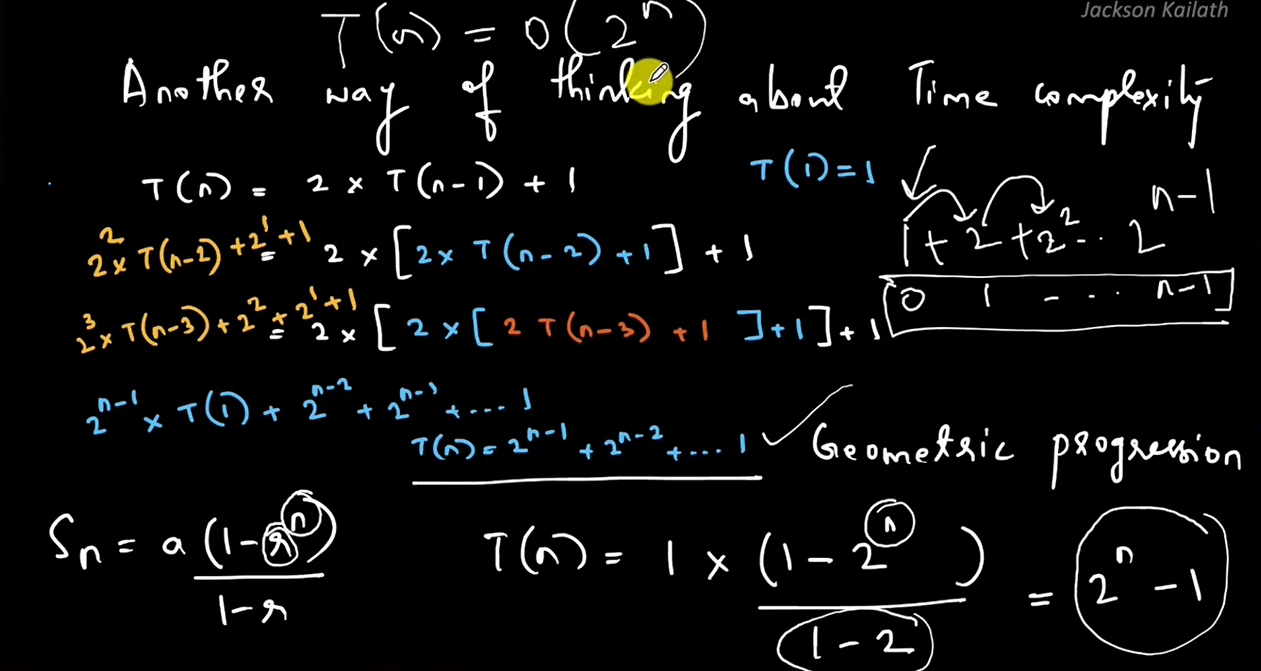 Jackson Kailath
T(n) = O(2^n)
Another way of thinking about Time complexity
T(n) = 2 × T(n-1) + 1
T(1) = 1
2^2 × T(n-2) + 2^1 + 1
= 2 × [2 × T(n-2) + 1] + 1
1 + 2 + 2^2 .. 2^(n-1)
0 1 - ... n-1
2^3 × T(n-3) + 2^2 + 2^1 + 1
= 2 × [2 × [2 T(n-3) + 1] + 1] + 1
2^(n-1) × T(1) + 2^(n-2) + 2^(n-3) + ... 1
T(n) = 2^(n-1) + 2^(n-2) + ... 1
Geometric progression
Sn = a(1-r^n) / 1-r
T(n) = 1 × (1 - 2^n) / 1 - 2 = 2^n - 1